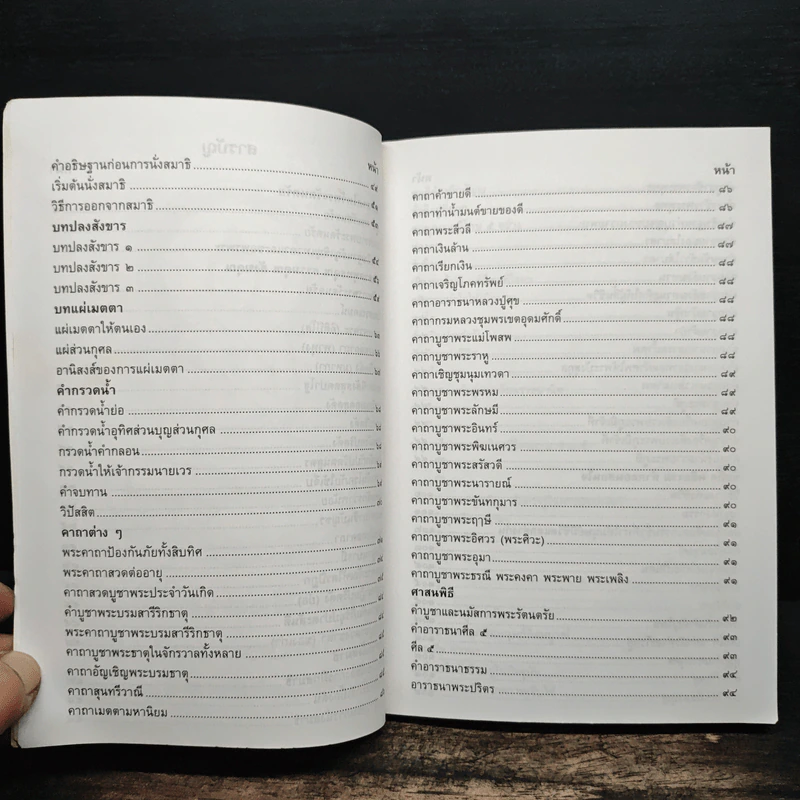 หน้า
คำอธิษฐานก่อนการนั่งสมาธิ
เริ่มต้นนั่งสมาธิ
วิธีการออกจากสมาธิ
บทปลงสังขาร
บทปลงสังขาร ๑
บทปลงสังขาร ๒
บทปลงสังขาร ๓
บทแผ่เมตตา
แผ่เมตตาให้ตนเอง
แผ่ส่วนกุศล
อานิสงส์ของการแผ่เมตตา
คำกรวดน้ำ
คำกรวดน้ำย่อ
คำกรวดน้ำอุทิศส่วนบุญส่วนกุศล
กรวดน้ำคำกลอน
กรวดน้ำให้เจ้ากรรมนายเวร
คำจบทาน
วิปัสสิต
คาถาต่าง ๆ
พระคาถาป้องกันภัยทั้งสิบทิศ
พระคาถาสวดต่ออายุ
คาถาสวดบูชาพระประจำวันเกิด
คำบูชาพระบรมสารีริกธาตุ
พระคาถาบูชาพระบรมสารีริกธาตุ
คาถาบูชาพระธาตุในจักรวาลทั้งหลาย
คาถาอัญเชิญพระบรมธาตุ
คาถาสุนทรีวาณี
คาถาเมตตามหานิยม
หน้า
คาถาค้าขายดี ๘๖
คาถาทำน้ำมนต์ขายของดี ๘๖
คาถาพระสีวลี ๘๗
คาถาเงินล้าน ๘๗
คาถาเรียกเงิน ๘๘
คาถาเจริญโภคทรัพย์ ๘๘
คาถาอาราธนาหลวงปู่ศุข ๘๘
คาถากรมหลวงชุมพรเขตอุดมศักดิ์ ๘๘
คาถาบูชาพระแม่โพสพ ๘๘
คาถาบูชาพระราหู ๘๘
คาถาเชิญชุมนุมเทวดา ๘๙
คาถาบูชาพระพรหม ๘๙
คาถาบูชาพระลักษมี ๘๙
คาถาบูชาพระอินทร์ ๙๐
คาถาบูชาพระพิฆเนศวร ๙๐
คาถาบูชาพระสรัสวดี ๙๐
คาถาบูชาพระนารายณ์ ๙๐
คาถาบูชาพระขันทกุมาร ๙๐
คาถาบูชาพระฤาษี ๙๑
คาถาบูชาพระอิศวร (พระศิวะ) ๙๑
คาถาบูชาพระอุมา ๙๑
คาถาบูชาพระธรณี พระคงคา พระพาย พระเพลิง ๙๑
ศาสนพิธี
คำบูชาและนมัสการพระรัตนตรัย ๙๒
คำอาราธนาศีล ๕ ๙๓
ศีล ๕ ๙๓
คำอาราธนาธรรม ๙๔
อาราธนาพระปริตร ๙๔